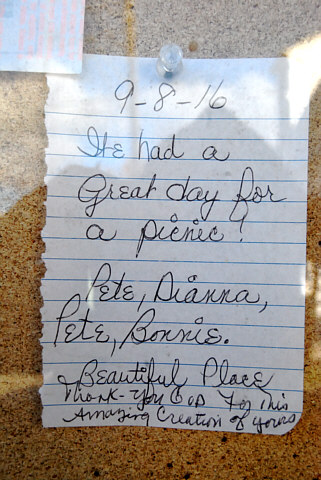 9-8-16
He had a
Great day for
a picnic!
Pete, Dianna,
Pete, Bonnie.
Beautiful Place
Thank-you God For this
Amazing Creation of yours